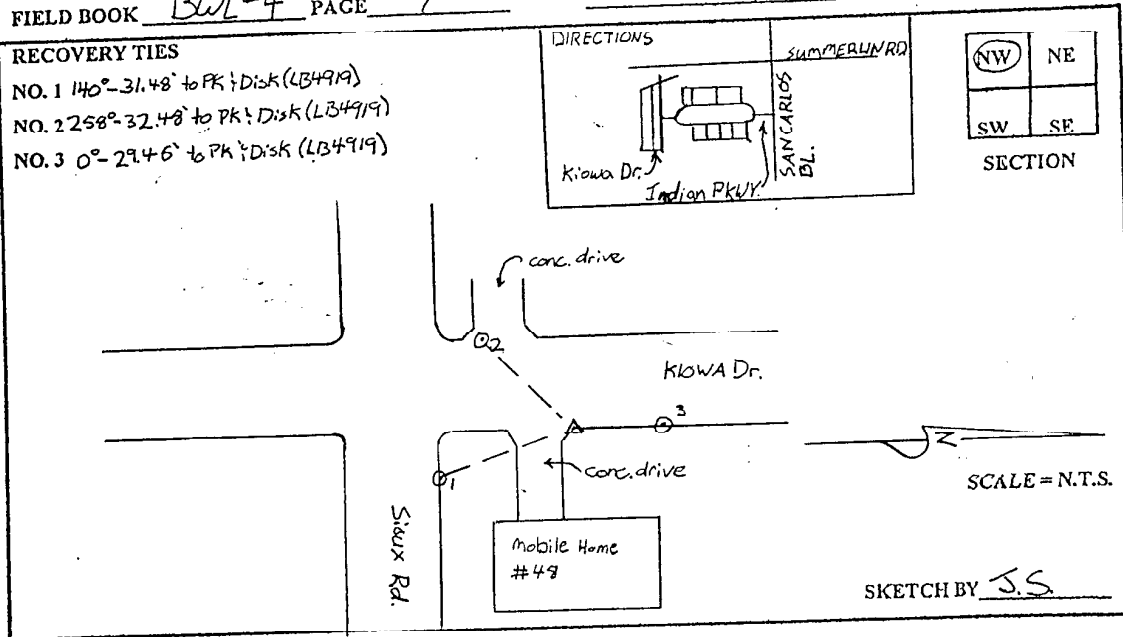 FIELD BOOK BWL-4 PAGE
RECOVERY TIES
NO. 1 140°-31.48' to PK & Disk (LB4919)
NO. 2 258°-32.48' to PK & Disk (LB4919)
NO. 3 0°-29.46' to PK & Disk (LB4919)
DIRECTIONS
SUMMERLIN RD
SAN CARLOS BL.
Kiowa Dr.
Indian PKWY.
NW NE
SW SE
SECTION
conc. drive
2
KIOWA Dr.
3
1
conc. drive
N
SCALE = N.T.S.
Sioux Rd.
Mobile Home
#48
SKETCH BY J.S.